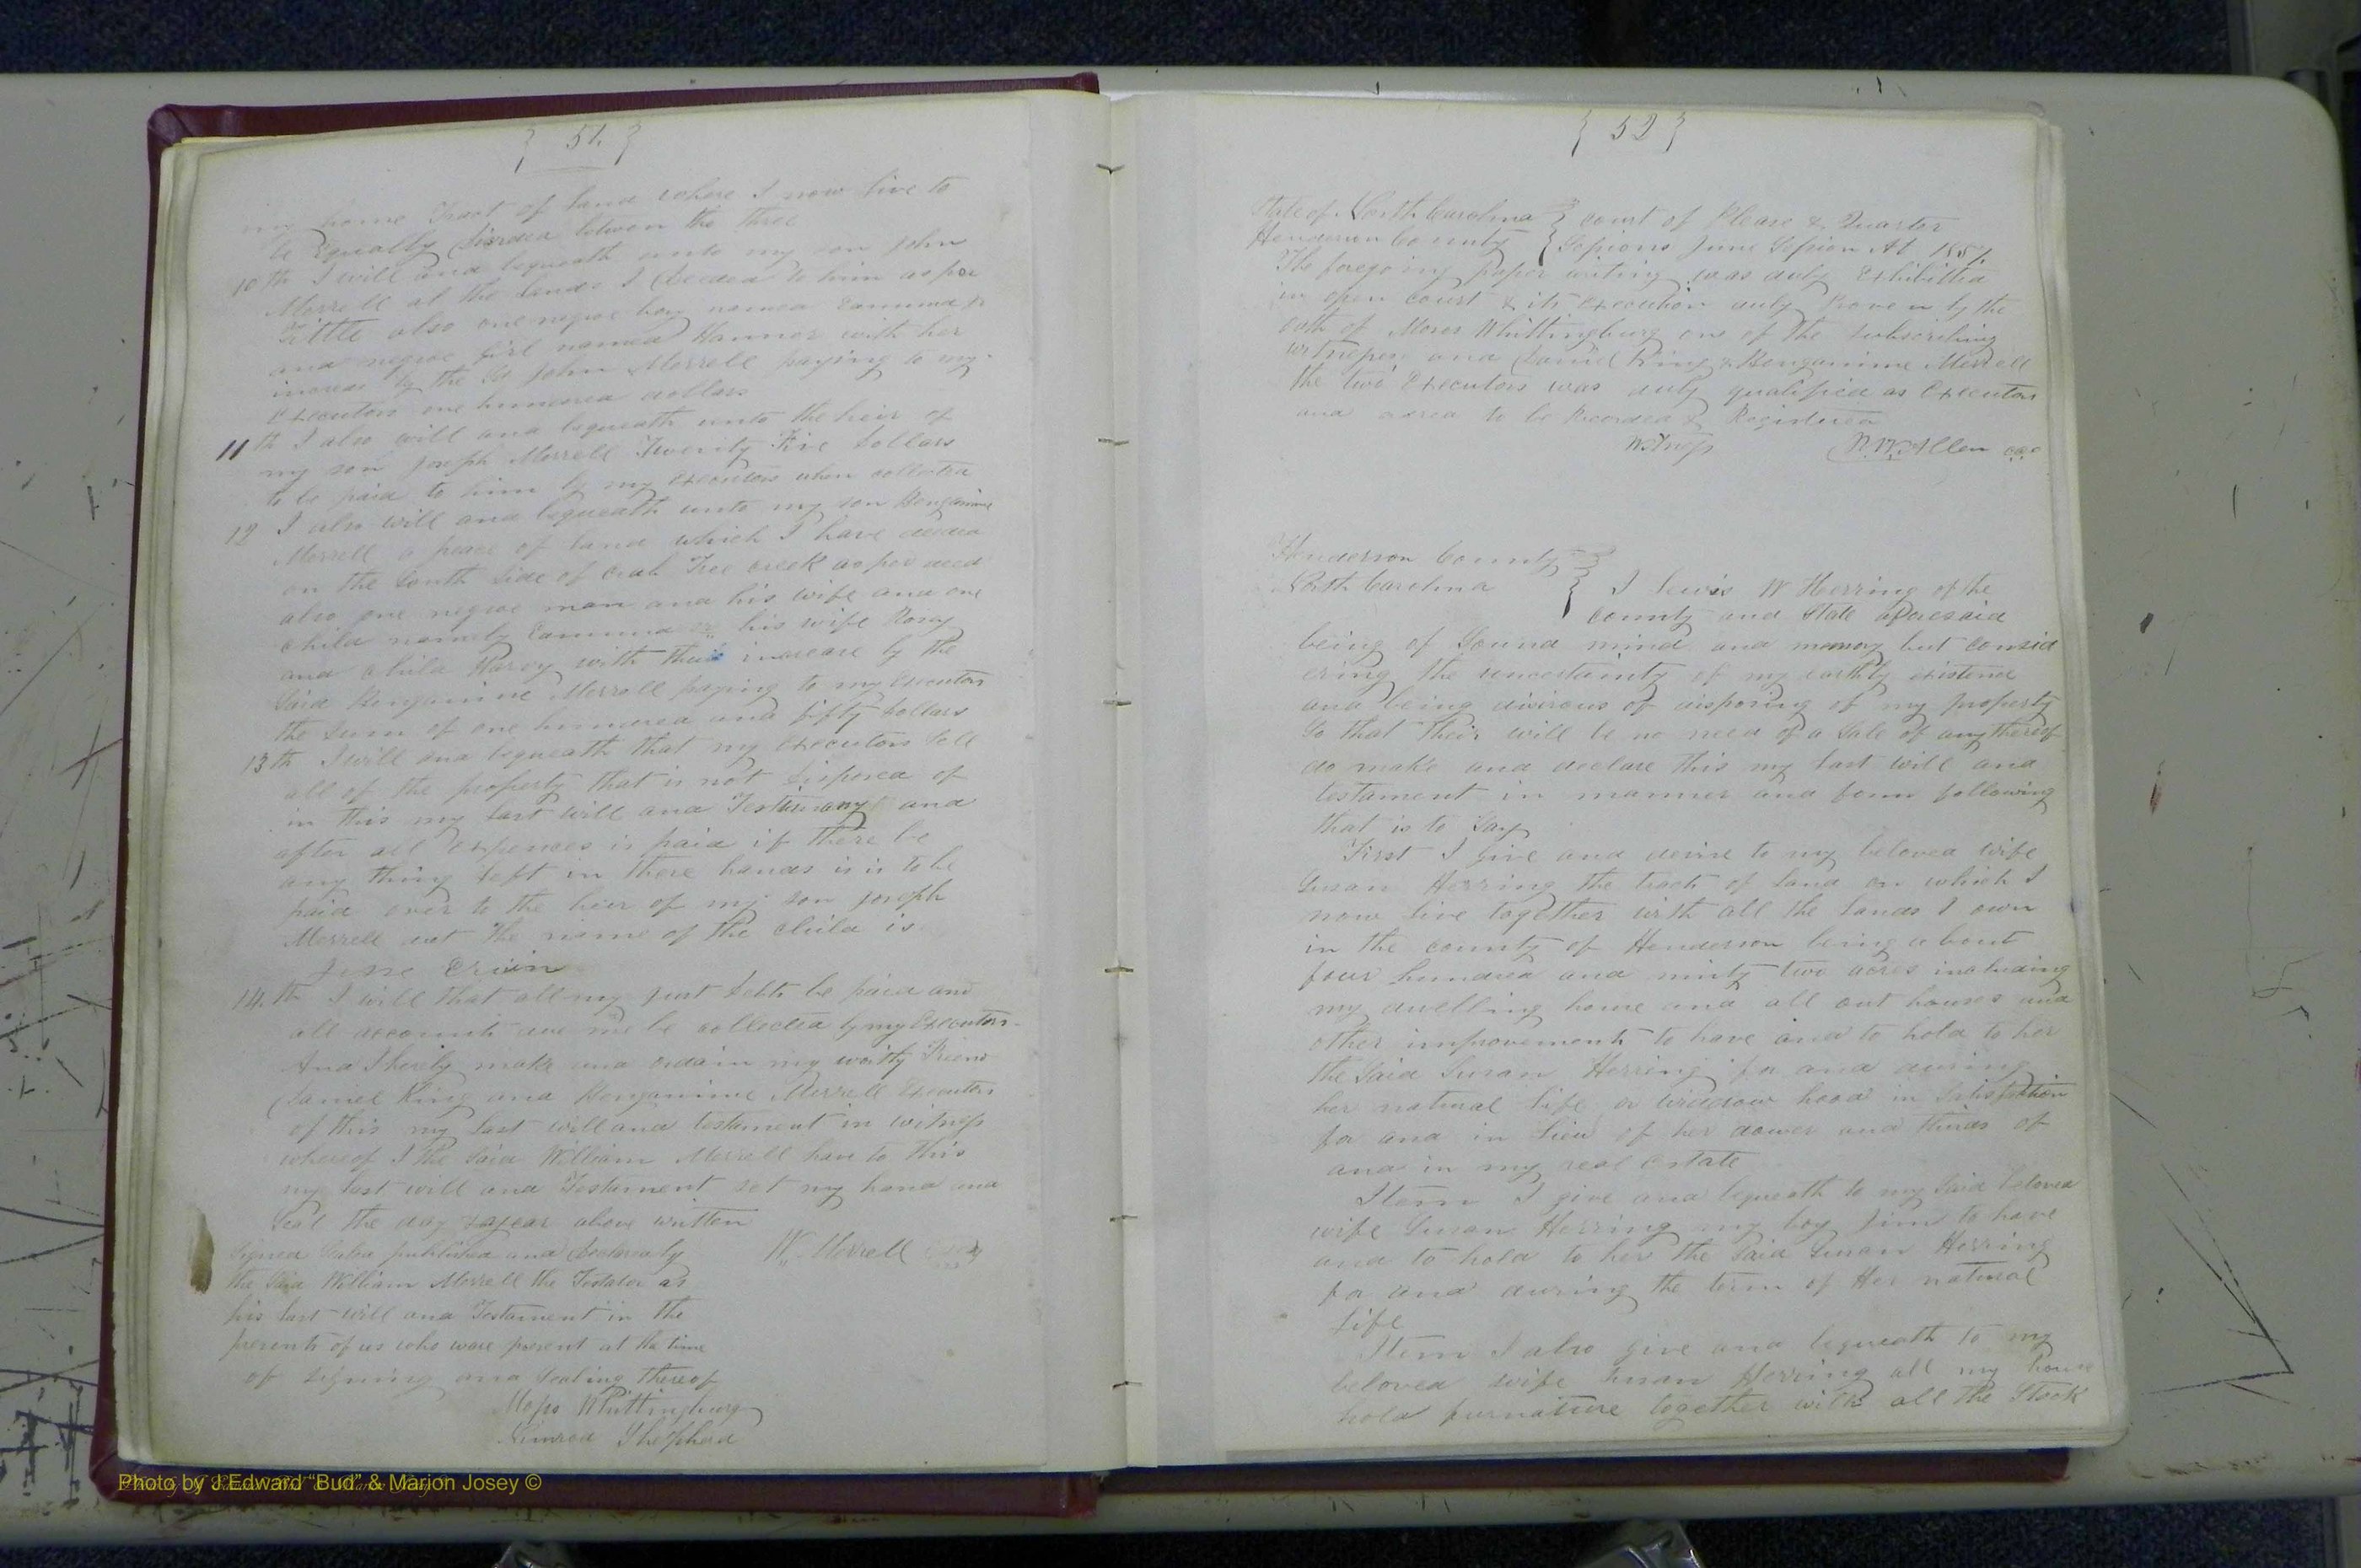 { 51. }
my home Tract of land where I now live to
be Equally Divided betwen the three
10th I will and bequeath unto my son John
Morrell at the lands I Deeded to him as per
Tittle also one negroe boy named Edmund &
and negroe girl named Hannor with her
increas by the Sd John Morrell paying to my
Executors one hundred dollars
11th I also will and bequeath unto the heir of
my son Joseph Morrell Twenty Five Dollars
to be paid to him by my Executors when collected
12 I also will and bequeath unto my son Bengamine
Morrell a peace of land which I have deeded
on the South Side of Crab Tree creek as per deed
also one negroe man and his wife and one
child namely Edmund & his wife Rosey
and child Harvy with their increase by the
Said Bengamine Morrell paying to my Executors
the Sum of one hundred and fifty Dollars
13th I will and bequeath that my Executors Sell
all of the property that is not Disposed of
in this my last will and Testamany and
after all Expences is paid if there be
any thing left in there hands is is to be
paid over to the heir of my son Joseph
Morrell dect The name of the child is
Jesse Ervin
14.th I will that all my just Debts be paid and
all accounts due me be collected by my Executors
And I hereby make and ordain my worthy Friend
Daniel King and Bengamine Morrell Executors
of this my last will and testament in witness
whereof I the Said William Morrell have to this
my last will and Testament set my hand and
Seal the day & year above written
Signed Sealed published and Declared by W. Morrell
the Said William Morrell the Testator as
his last will and Testament in the
presents of us who ware present at the time
of signing and Sealing thereof
Moses Whittingburg
Nimrod Shepherd
{ 52 }
State of North Carolina } Court of Pleas & Quarter
Henderson County } Sessions June Session At 1851.
The foregoing paper writing was duly Exhibitted
in open court & its Execution duly Proven by the
oath of Moses Whittingburg one of the subscribing
witnesses and Daniel King & Bengamine Morrell
the two Executors was duly qualified as Executors
and ordred to be Recorded & Registered
Witness R. W. Allen
Henderson County }
North Carolina } I Lewis W Herring of the
County and State aforesaid
being of Sound mind and memory but consid
ering the uncertainty of my earthly existence
and being disirous of disposing of my property
So that their will be no need of a Sale of any thereof
do make and declare this my last will and
testament in manner and form following
that is to Say
First I give and devise to my beloved wife
Susan Herring the tract of land on which I
now live together with all the lands I own
in the county of Henderson being about
four hundred and ninty two acres including
my dwelling house and all out houses and
other improvements to have and to hold to her
the Said Susan Herring for and during
her natural life or widdow hood in Satisfaction
for and in lieu of her dower and thirds of
and in my real Estate
Item I give and bequeath to my Said beloved
wife Susan Herring my boy Jim to have
and to hold to her the Said Susan Herring
for and during the term of Her natural
life
Item I also give and bequeath to my
beloved wife Susan Herring all my house
hold furnature together with all the Stock
Photo by J Edward "Bud" & Marion Josey ©